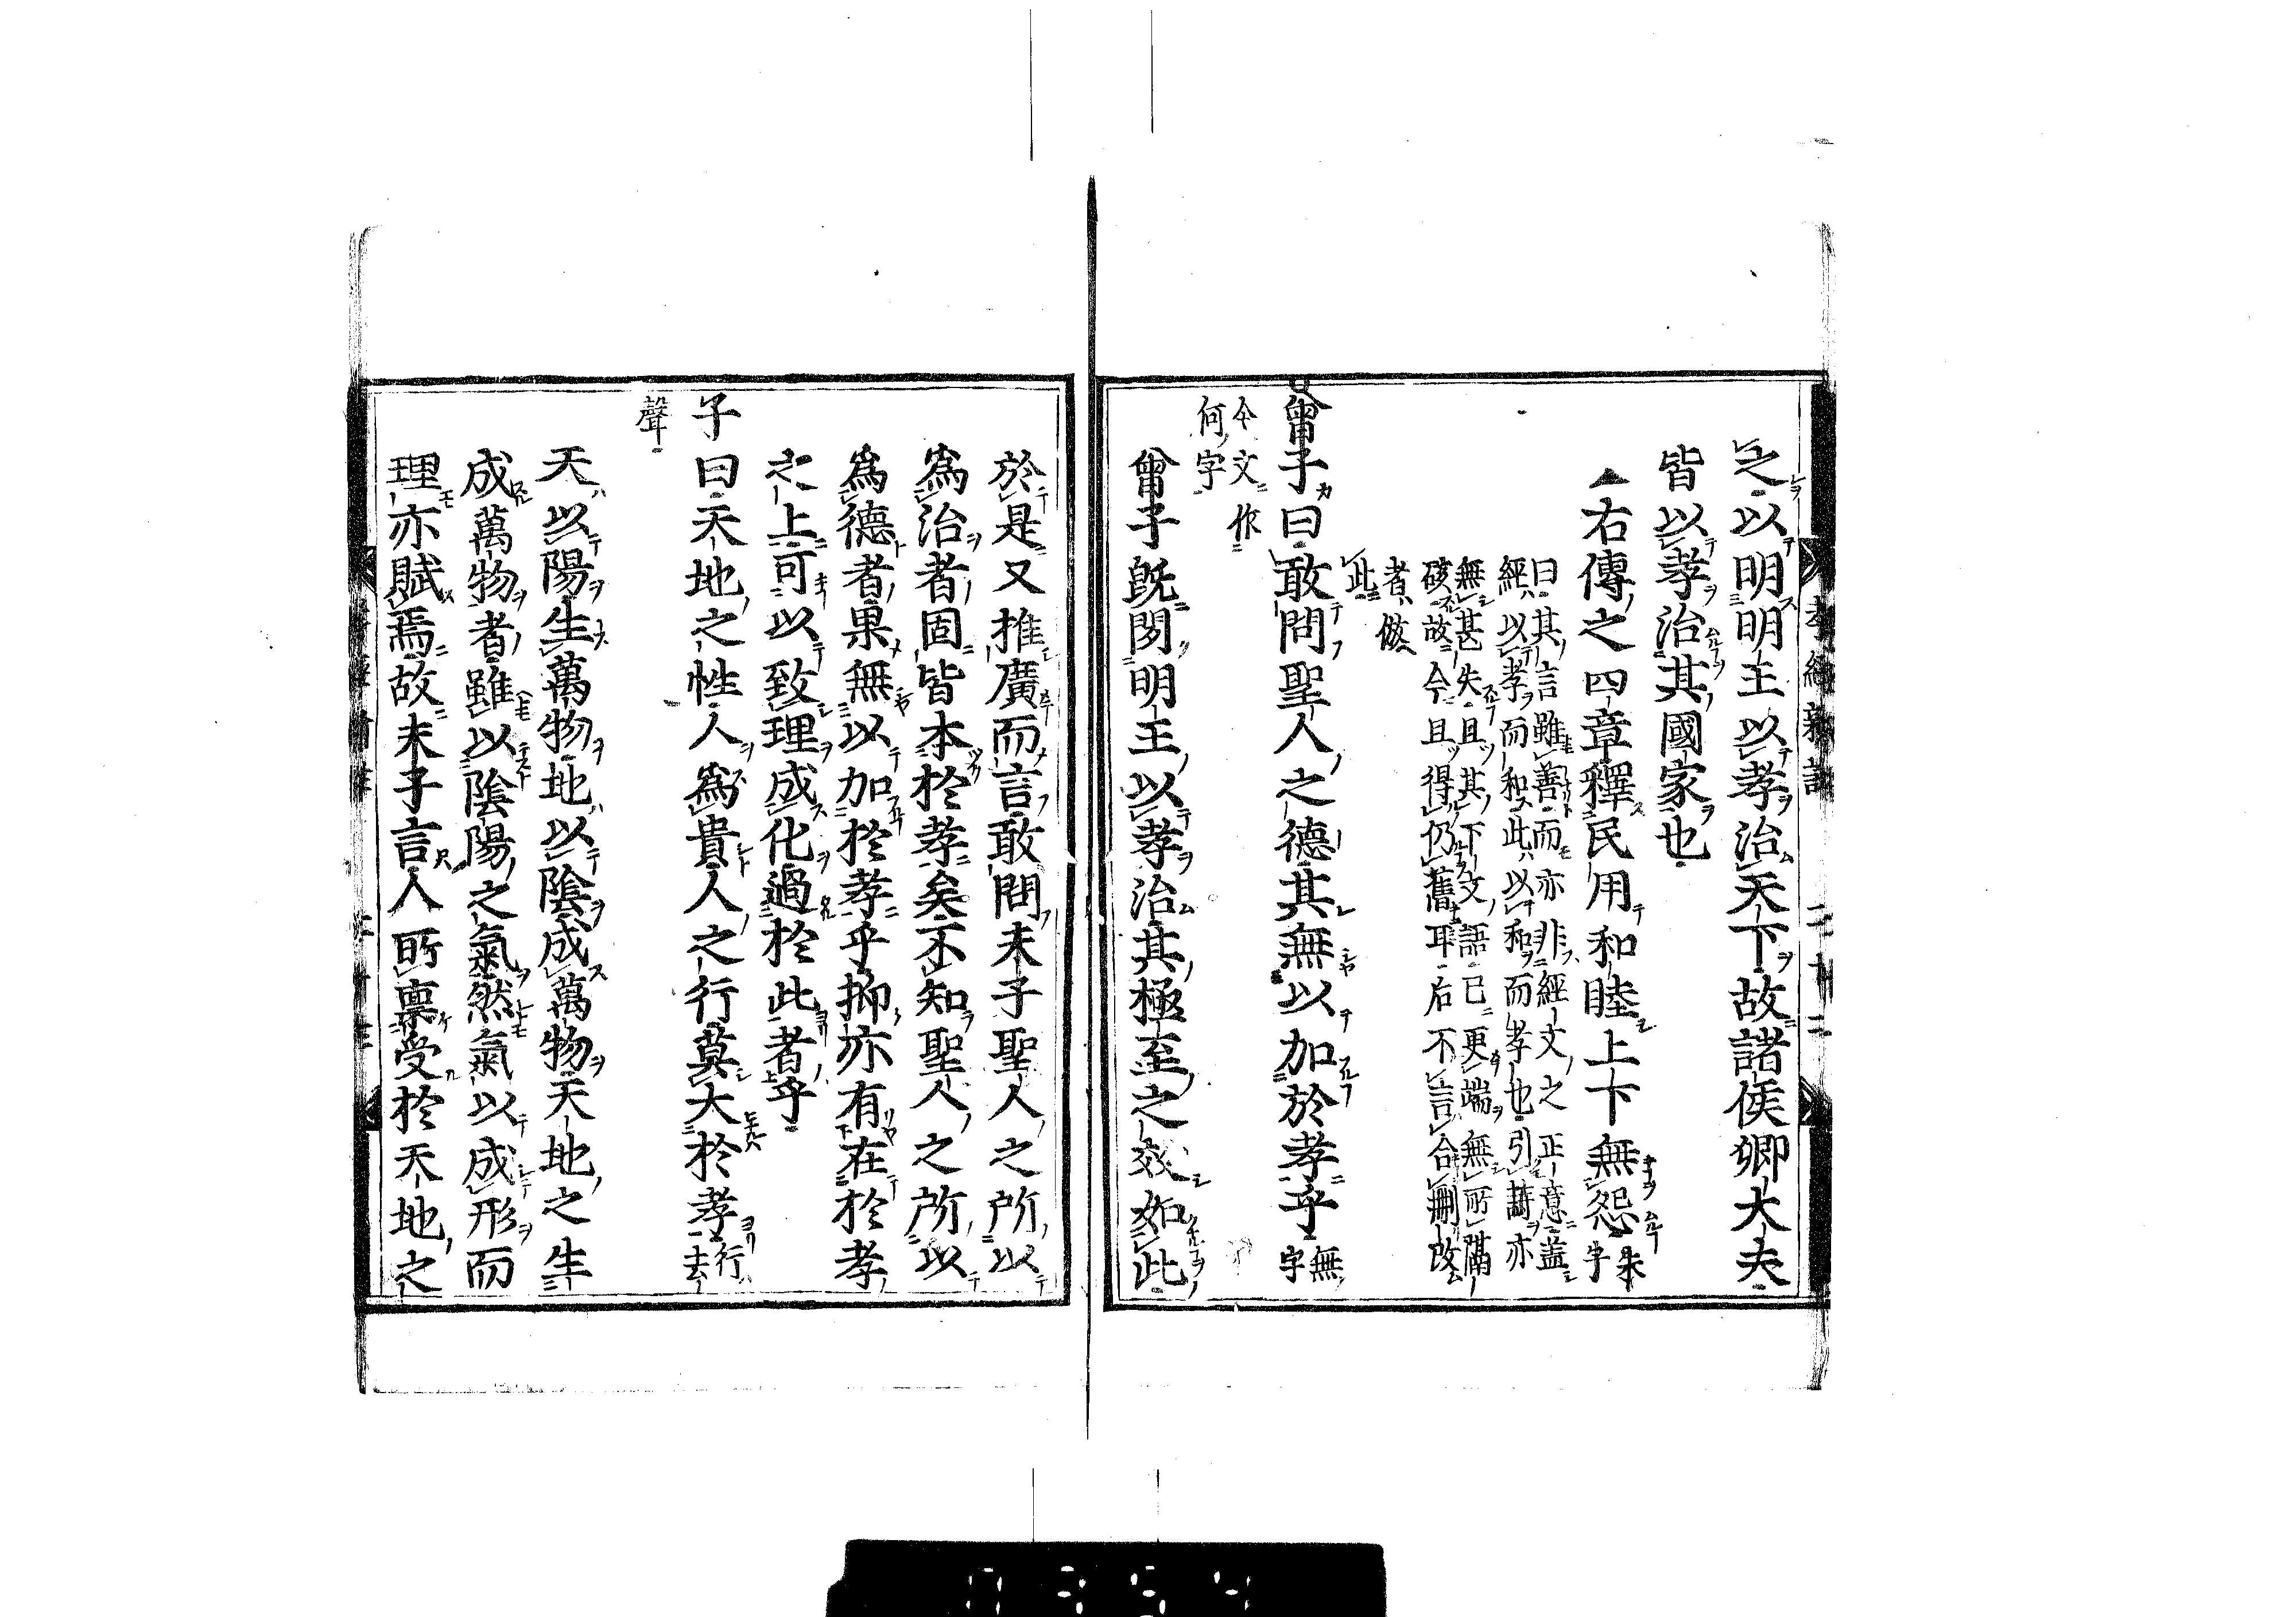 之以明明主以孝治天下故諸侯卿大夫
皆以孝治其國家也
▲右傳之四章釋民用和睦上下無怨朱
字
曰其言雖善而亦非經文之正意蓋
經以孝而和此以和而孝也引詩亦
無甚失且其下文語已更端無所隔
礙故今且得仍舊耳后不言合刪改
者倣
此
曾子曰敢問聖人之德其無以加於孝乎無
字
今文作
何字
曾子既聞明主以孝治其極至之效如此
於是又推廣而言敢問夫子聖人之所以
為治者固皆本於孝矣不知聖人之所以
為德者果無以加於孝乎抑亦有在於孝
之上可以致理成化過於此者乎
子曰天地之性人為貴人之行莫大於孝行
去
聲
天以陽生萬物地以陰成萬物天地之生
成萬物者雖以陰陽之氣然氣以成形而
理亦賦焉故夫子言人所稟受於天地之